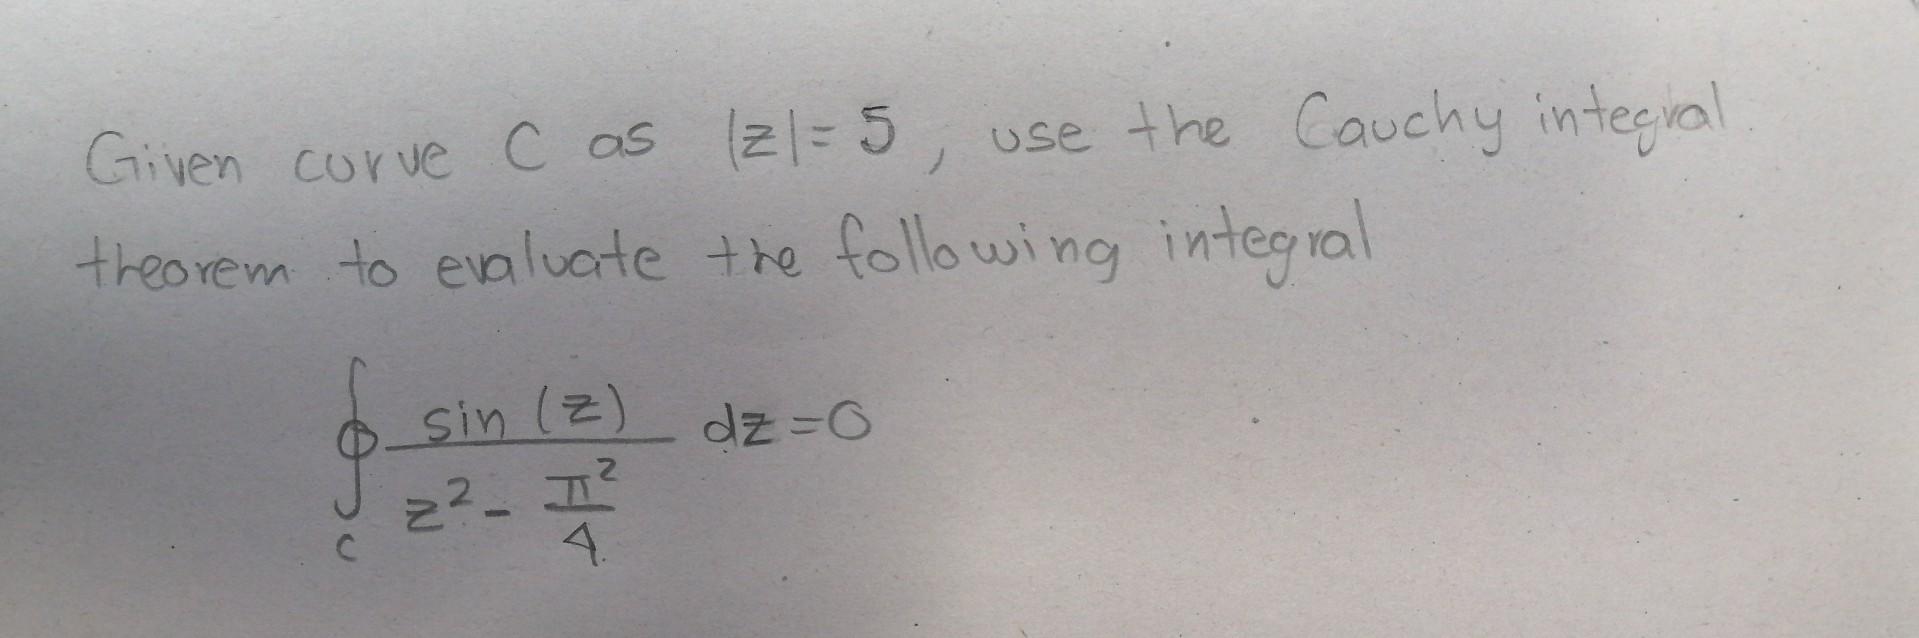 Given curve C as |z| = 5, use the Cauchy integral
theorem to evaluate the following integral
∮_C sin(z) / (z² - π²/4) dz = 0